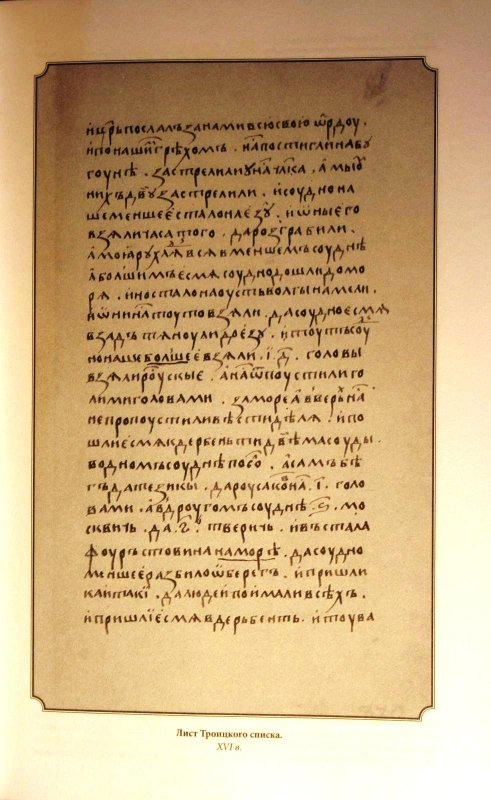 и҆ цр҃ь послалъ за нами всю свою ѡ҆рдоу .
и҆ по наши грѣхомъ . на постигли на бу
гоунѣ . застрелили у на чл҃ка , а҆ мы оу
них двꙋ застрелили . и҆ соудно на
ше меншее стало на е҆зꙋ . и҆ ѡ҆ны е҆го
взѧли часа того . да розграбили .
а҆ моꙗ рухлѧ всѧ в меншемъ соуднѣ
а҆ болшимъ е҆смѧ соудно дошли до мо
рѧ . и҆но стало на оустъ волгы на мели .
и҆ ѡ҆ни на тоуто взѧли . да соудно е҆смѧ
взадъ тѧноули до е҆зу . и҆ тоутъ соу
но наше болшее взѧли . і҃ д҃ . головы
взѧли роускые . а҆ на ѿпоустили го
лими головами . за море а҆ вверь на
не пропоустили вѣсти дѣлѧ . и҆ по
шли е҆смѧ к дербеньти двѣма соуды .
в одномъ соуднѣ посо . а҆самъ бѣ
гъ да тезикы . да роусакова на . і҃ . голо
вами . а҆ в дроугомъ соуднѣ . ѕ҃ . мо
сквичь . да . г҃ . тверичь . и҆ въстала
фоурстовина на морѣ . да соудно
меншее разбило ѡ҆ берегъ . и҆ пришли
каитаки . да людей поимали всѣхъ .
и҆ пришли е҆смѧ в дерьбенть . и҆ тоу ва
Лист Троицкого списка.
XVI в.